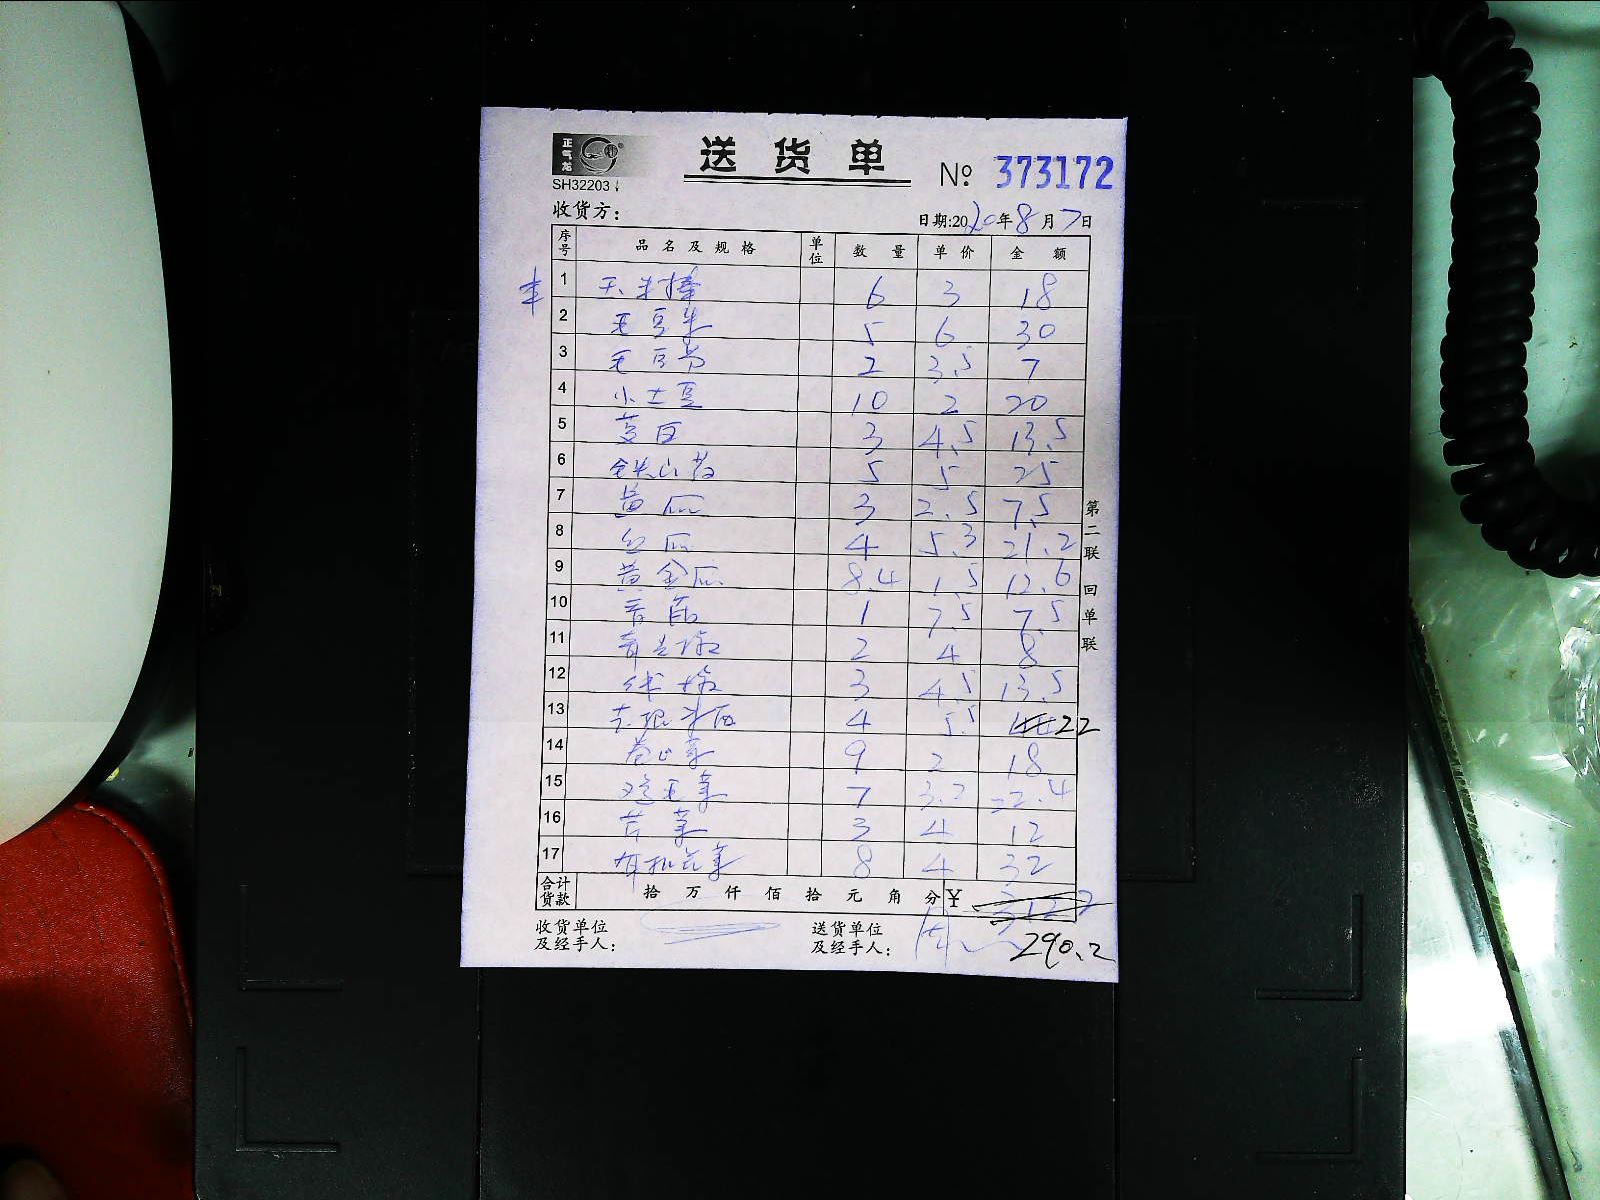 正气龙
送货单
№ 373172
SH32203
收货方：
日期:2020年8月7日
序号 品名及规格 单位 数量 单价 金额
1 玉米棒 6 3 18
2 毛豆米 5 6 30
3 毛豆节 2 3.5 7
4 小土豆 10 2 20
5 茭白 3 4.5 13.5
6 铁山药 5 5 25
7 黄瓜 3 2.5 7.5
8 丝瓜 4 5.3 21.2
9 黄金瓜 8.4 1.5 12.6
10 香菇 1 7.5 7.5
11 青尖椒 2 4 8
12 线椒 3 4.5 13.5
13 本地洋西 4 5.5 22
14 卷心菜 9 2 18
15 鸡毛菜 7 3.2 22.4
16 芹菜 3 4 12
17 有机花菜 8 4 32
合计货款 拾万仟佰拾元角分 ¥
290.2
收货单位及经手人：
送货单位及经手人：
第二联 回单联